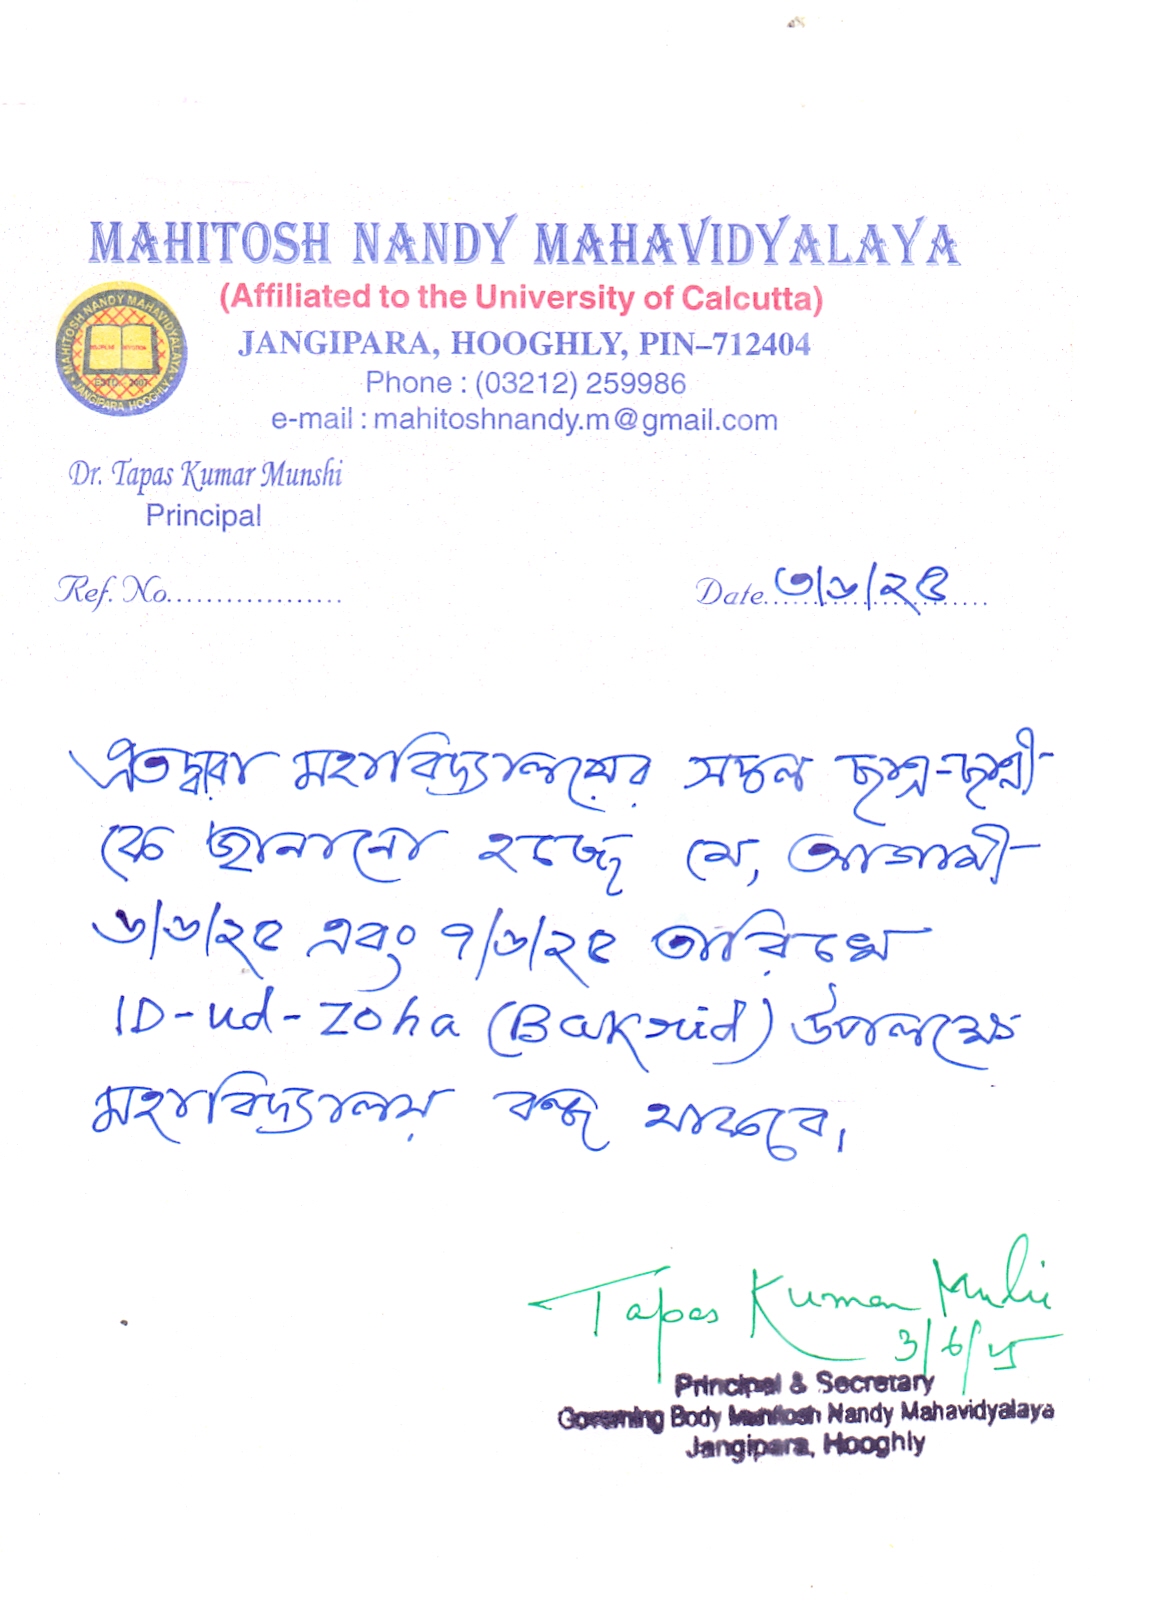 MAHITOSH NANDY MAHAVIDYALAYA
(Affiliated to the University of Calcutta)
JANGIPARA, HOOGHLY, PIN–712404
Phone : (03212) 259986
e-mail : mahitoshnandy.m@gmail.com
MAHITOSH NANDY MAHAVIDYALAYA
ESTD. - 2007
JANGIPARA, HOOGHLY
Dr. Tapas Kumar Munshi
Principal
Ref. No..................
Date. ৩/৬/২৫
এতদ্বারা মহাবিদ্যালয়ের সকল ছাত্র-ছাত্রী-
কে জানানো হচ্ছে যে, আগামী-
৬/৬/২৫ এবং ৭/৬/২৫ তারিখে
ID-ud-Zoha (Bakrid) উপলক্ষে
মহাবিদ্যালয় বন্ধ থাকবে।
Tapas Kumar Munshi
3/6/25
Principal & Secretary
Governing Body Mahitosh Nandy Mahavidyalaya
Jangipara, Hooghly